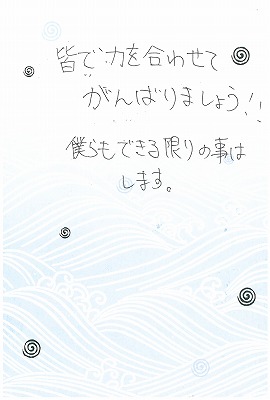 皆で力を合わせて
がんばりましょう!!
僕らもできる限りの事は
します。